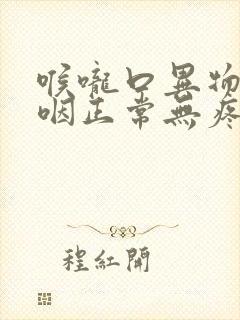 喉嚨口異物
咽正常無疼
程紅開